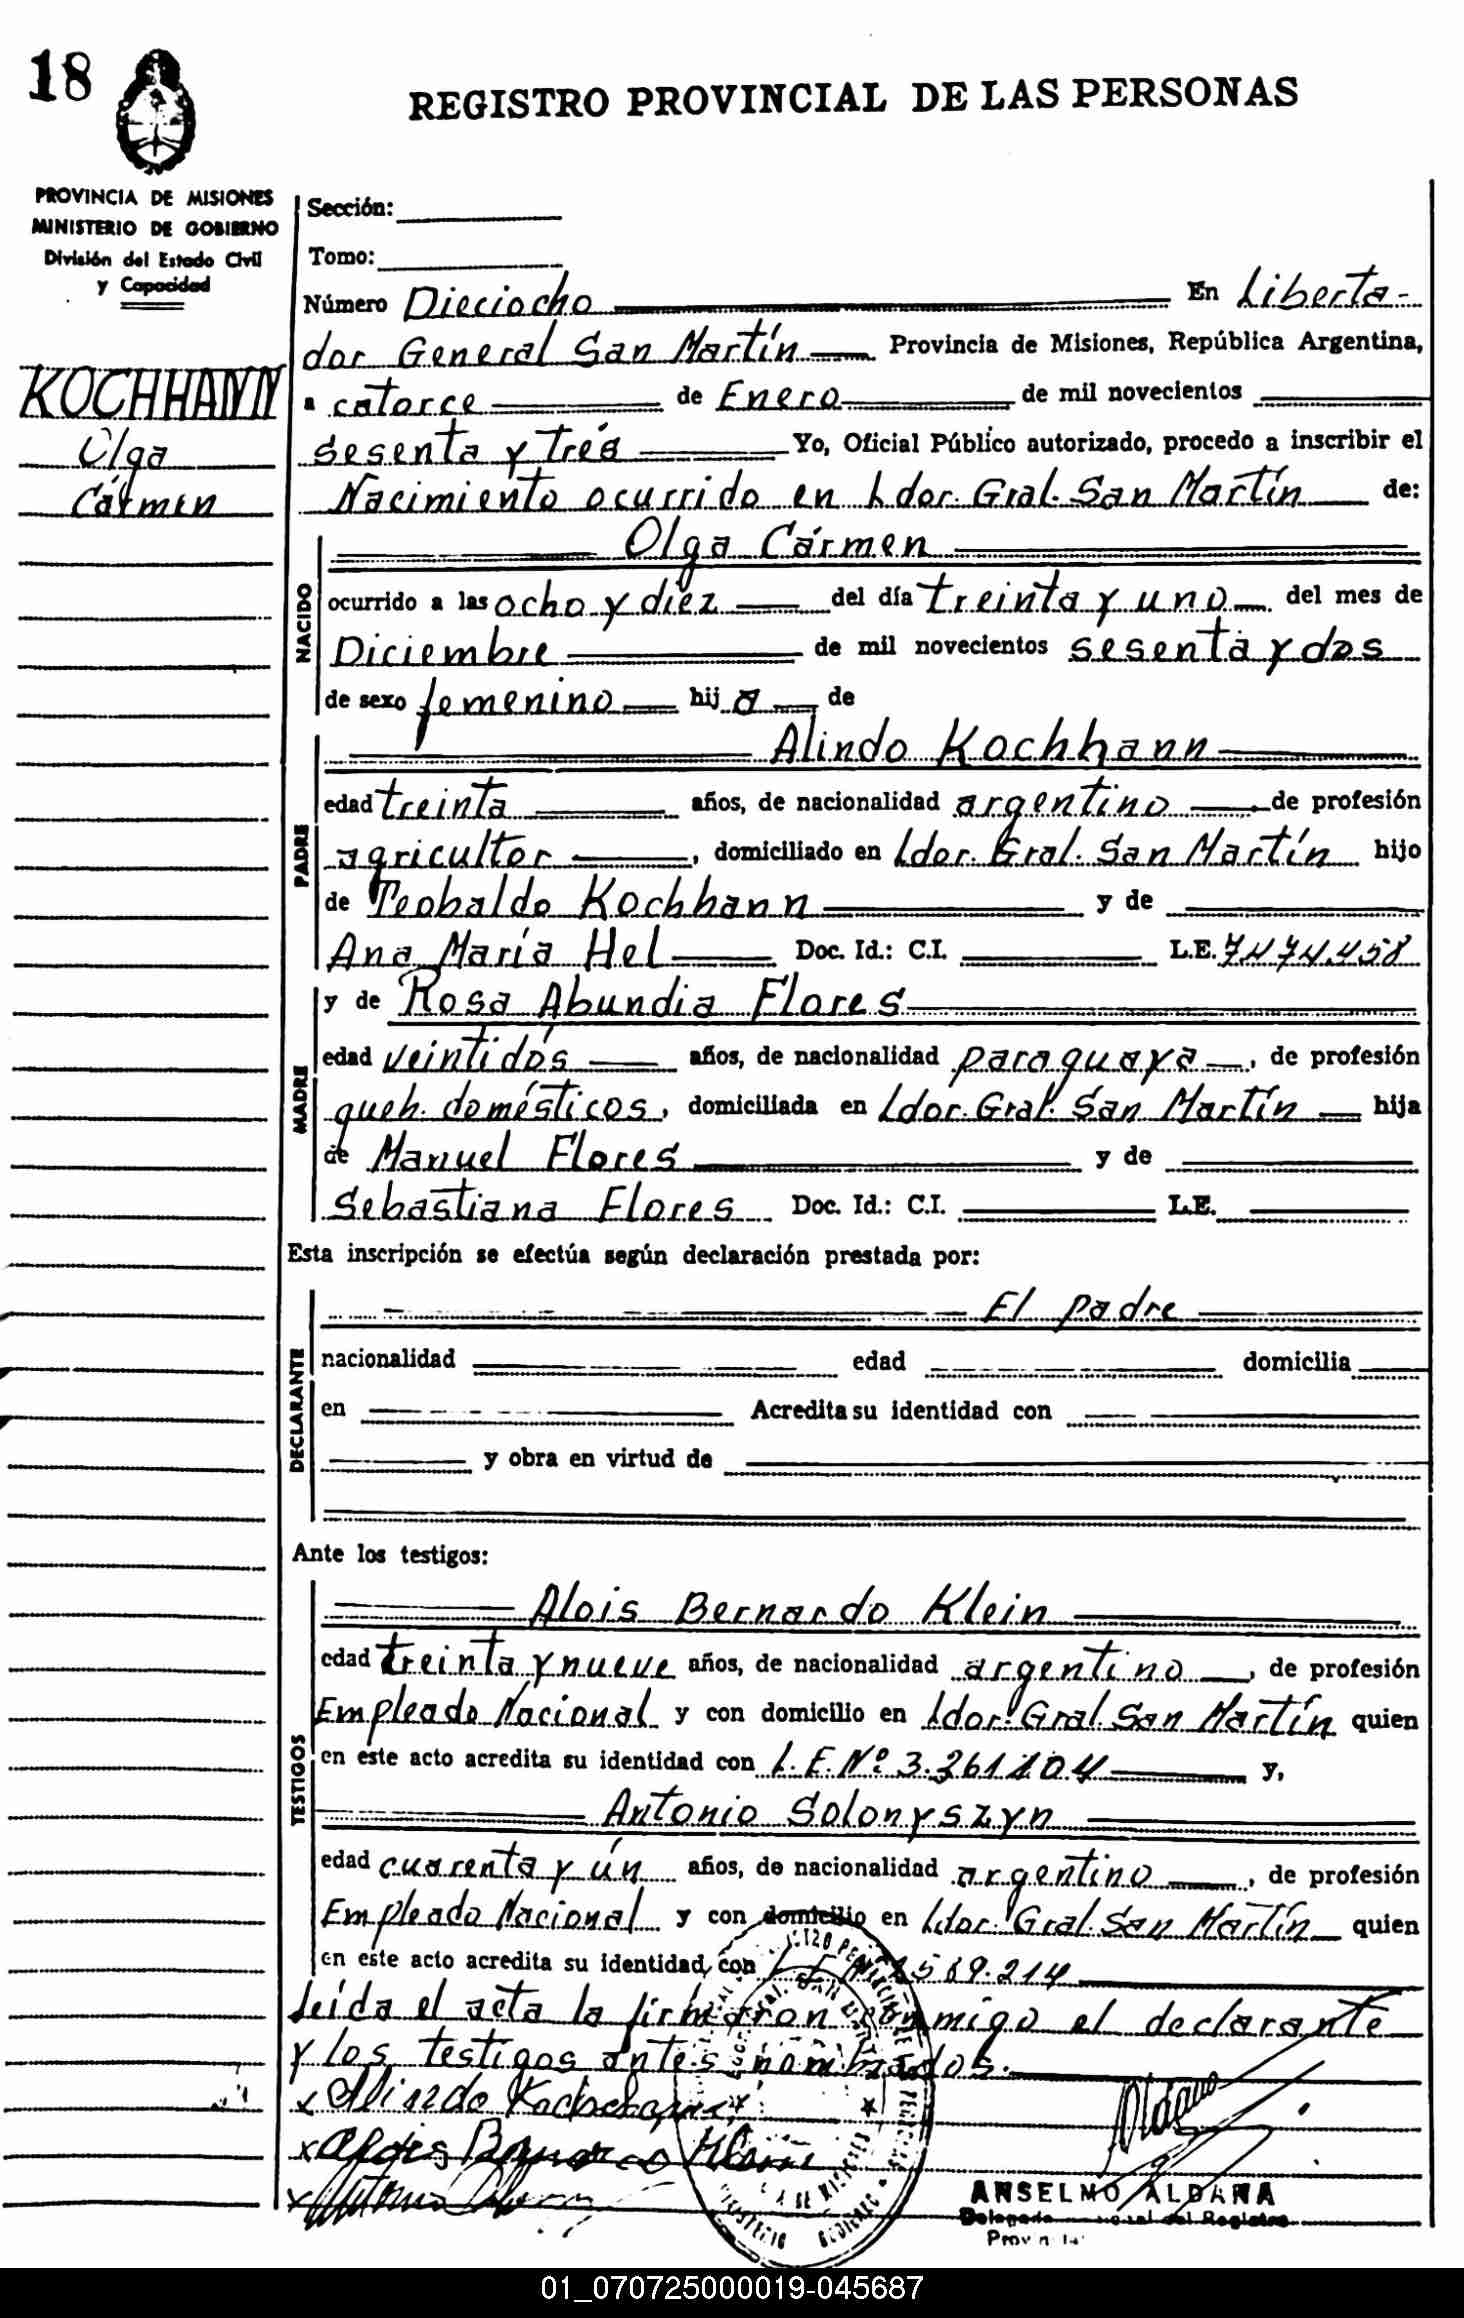 18
REGISTRO PROVINCIAL DE LAS PERSONAS
PROVINCIA DE MISIONES
MINISTERIO DE GOBIERNO
División del Estado Civil
y Capacidad
KOCHHANN
Olga
Cármen
Sección:
Tomo:
Número Dieciocho En Liberta-
dor General San Martín Provincia de Misiones, República Argentina,
a catorce de Enero de mil novecientos
sesenta y trés Yo, Oficial Público autorizado, procedo a inscribir el
Nacimiento ocurrido en Ldor. Gral. San Martín de:
NACIDO
Olga Cármen
ocurrido a las ocho y diez del día treinta y uno del mes de
Diciembre de mil novecientos sesenta y dos
de sexo femenino hija de
PADRE
Alindo Kochhann
edad treinta años, de nacionalidad argentino de profesión
agricultor, domiciliado en Ldor. Gral. San Martín hijo
de Teobaldo Kochhann y de
Ana María Hel Doc. Id.: C.I. L.E. 7.474.458
MADRE
y de Rosa Abundia Flores
edad veintidós años, de nacionalidad paraguaya, de profesión
queh. domésticos, domiciliada en Ldor. Gral. San Martín hija
de Manuel Flores y de
Sebastiana Flores Doc. Id.: C.I. L.E.
Esta inscripción se efectúa según declaración prestada por:
DECLARANTE
El padre
nacionalidad edad domicilia
en Acredita su identidad con
y obra en virtud de
Ante los testigos:
TESTIGOS
Alois Bernardo Klein
edad treinta y nueve años, de nacionalidad argentino, de profesión
Empleado Nacional y con domicilio en Ldor. Gral. San Martín quien
en este acto acredita su identidad con L.E. Nº 3.261104 y,
Antonio Solonyszyn
edad cuarenta y ún años, de nacionalidad argentino, de profesión
Empleado Nacional y con domicilio en Ldor. Gral. San Martín quien
en este acto acredita su identidad con 569.214
Leída el acta la firmaron conmigo el declarante
y los testigos antes nombrados.
x Alindo
x Klein
x
ANSELMO ALDANA
Delegado del Registro
01_070725000019-045687